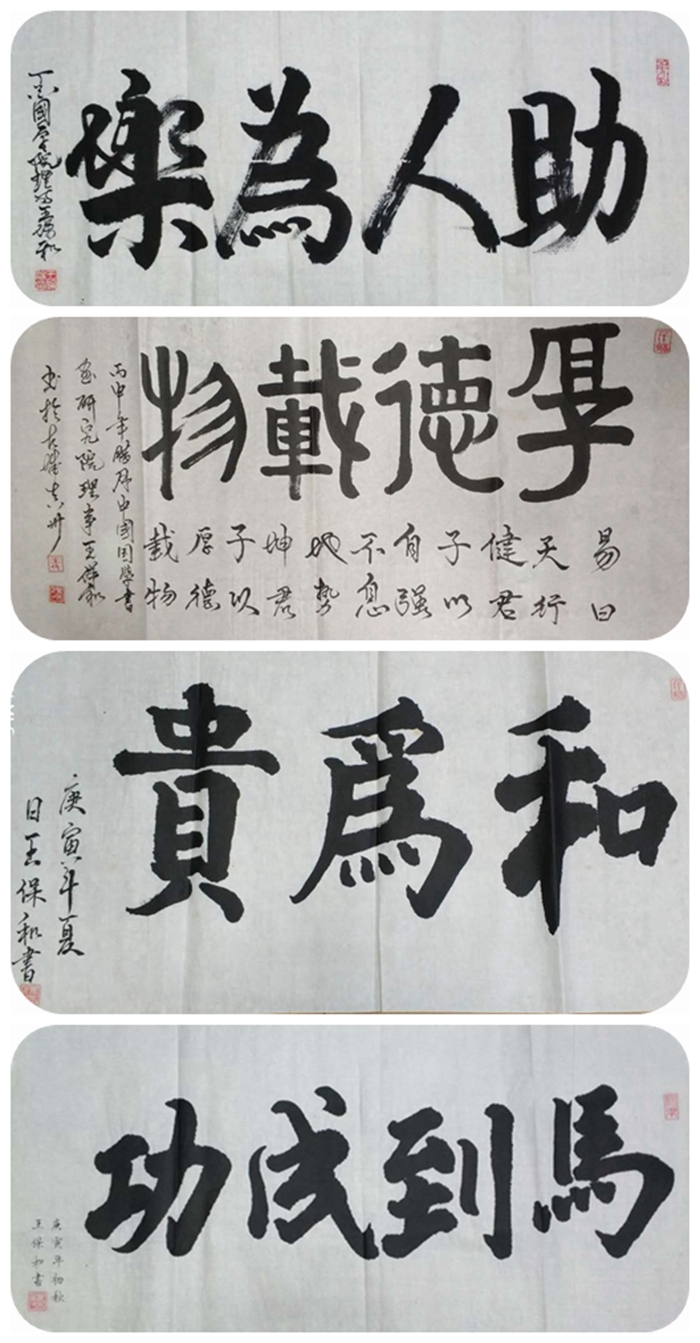 助人為樂
厚德載物
易曰
天行
健君
子以
自强
不息
地勢
坤君
子以
厚德
载物
丙申年臘月中國国學書
畫研究院理事王保和
和為貴
庚寅年夏
日王保和書
馬到成功
庚寅年初秋
王保和書